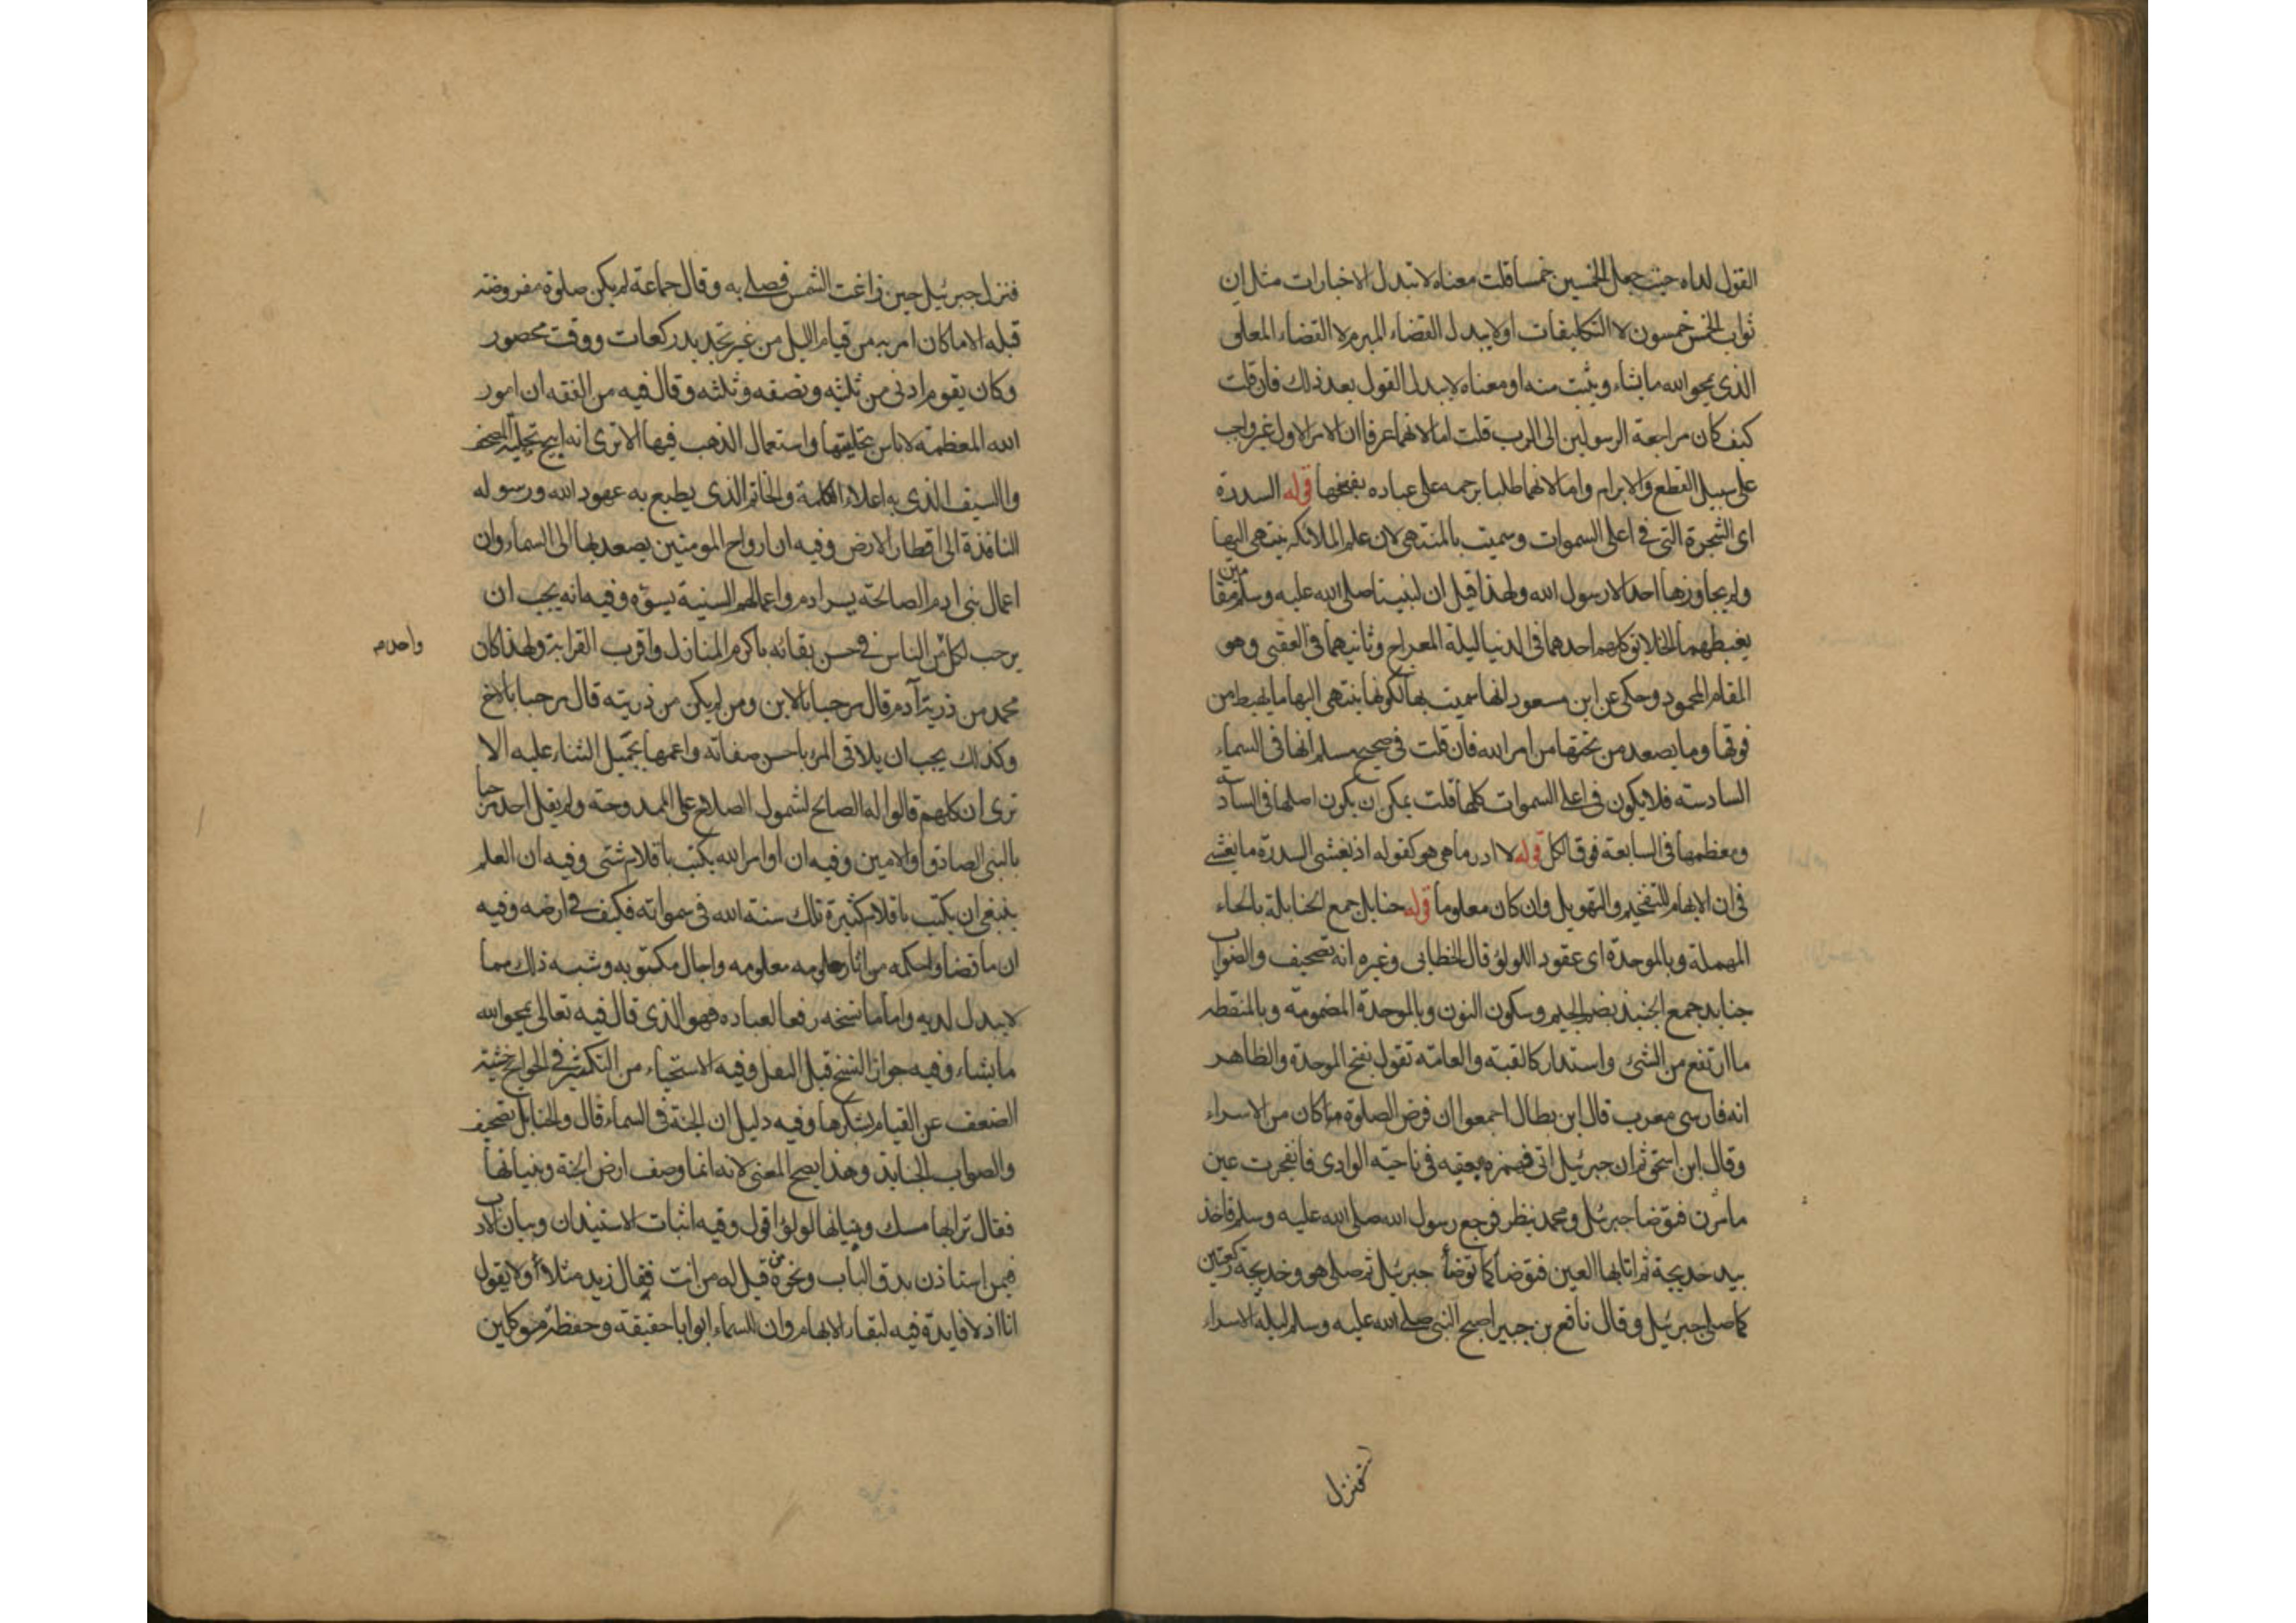 القول لداه حيث جعل الخمسين خمسا قلت معناه لا تبدل الاخبارات مثل ان
ثواب الخمس خمسون لا التكليفات او لا يبدل القضاء المبرم لا القضاء المعلق
الذى يمحو الله ما يشاء ويثبت منه او معناه لا يبدل القول بعد ذلك فان قلت
كيف كان مراجعة الرسولين الى الرب قلت اما لانهما عرفا ان الامر الاول غير واجب
على سبيل القطع والابرام واما لانهما طلبا ترحمه على عباده بفسخها قوله السدرة
اى الشجرة التى فى اعلى السموات وسميت بالمنتهى لان علم الملائكه ينتهى اليها
ولم يجاوزها احد الا رسول الله ولهذا قيل ان لنبينا صلى الله عليه وسلم مقامين
يغبطهما الخلايق كلهم احدهما فى الدنيا ليلة المعراج وثانيهما فى العقبى وهو
المقام المحمود وحكى عن ابن مسعود انها سميت بها لكونها ينتهى اليها ما يهبط من
فوقها وما يصعد من تحتها من امر الله فان قلت فى صحيح مسلم انها فى السماء
السادسته فلا يكون فى اعلى السموات كلها قلت يمكن ان يكون اصلها فى السادسة
ومعظمها فى السابعة فوق الكل قوله لا ادر ما هى هو كقوله اذ يغشى السدرة ما يغشى
فى ان الابهام للتفخيم والتهويل وان كان معلوما قوله حنايل جمع الحنابلة بالحاء
المهملة وبالموحدة اى عقود اللولؤ قال الخطابى وغيره انه تصحيف والصواب
جنابد جمع الجنبذ بضم الجيم وسكون النون وبالموحدة المضمومة وبالمنقطه
ما ارتفع من الشئ واستدار كالقبة والعامة تقول بفتح الموحدة والظاهر
انه فارسى معرب قال ابن بطال اجمعوا ان فرض الصلوة ما كان من الاسراء
وقال ابن اسحق ثم ان جبرئيل اتى فهمزه بعقبه فى ناحية الوادى فانفجرت عين
ما مزن فتوضا جبرئيل ومحمد ينظر فرجع رسول الله صلى الله عليه وسلم فاخذ
بيد خديجة ثم اتا بها العين فتوضا كما توضأ جبرئيل ثم صلى هو وخديجة ركعتين
كما صلى جبرئيل وقال نافع بن جبير اصبح النبى صلى الله عليه وسلم ليلة الاسراء
فنزل
فنزل جبرئيل حين زاغت الشمس فصلى به وقال جماعة لم يكن صلوة مفروضة
قبله الا ما كان امر به من قيام الليل من غير تحديد ركعات ووقت محصور
وكان يقوم ادنى من ثلثيه ونصفه وثلثه وقال فيه من الفقه ان امور
الله المعظمة لا باس بتحليتها واستعمال الذهب فيها الا ترى انه ابيح تحلية المصحف
والسيف الذى به اعلاء الكلمة والخاتم الذى يطبع به عهود الله ورسوله
النافذة الى اقطار الارض وفيه ان ارواح المومنين يصعد بها الى السماء وان
اعمال بنى ادم الصالحة يسر ادم واعمالهم السيئة يسؤه وفيه انه يجب ان
يرحب لكل من الناس فى حسن بقائه باكرم المنازل واقرب القرابة ولهذا كان
واحد م
محمد من ذرية آدم قال مرحبا بالابن ومن لم يكن من ذريته قال مرحبا بالاخ
وكذلك يجب ان يلاقى المرء باحسن صفاته واعمها بجميل الثناء عليه الا
ترى ان كلهم قالوا له الصالح لشمول الصلاح على الممدوحة ولم يقل احد مرحبا
بالنبى الصادق او الامين وفيه ان اوامر الله يكتب باقلام شتى وفيه ان العلم
ينبغى ان يكتب باقلام كثيرة تلك سنة الله فى سمواته فكيف فى ارضه وفيه
ان ما قضاه واحكمه من اثار معلومه واجال مكتوبه وشبه ذلك مما
لا يبدل لديه واما ما نسخه رفعا لعباده فهو الذى قال فيه تعالى يمحو الله
ما يشاء وفيه جواز النسخ قبل الفعل وفيه الاستحياء من التكثير فى الحوايج خشية
الضعف عن القيام بشكرها وفيه دليل ان الجنة فى السماء قال والحنايل تصحيف
والصواب الجنابذ وهذا يصح المعنى لانه انما وصف ارض الجنة وبنيانها
فقال ترابها مسك وبنيانها لولؤ اقول وفيه اثبات الاستيذان وبيان الادب
فيمن استاذن بدق الباب ونحوه قيل له من انت فقال زيد مثلا اولا يقول
انا اذ لا فايدة فيه لبقاء الابهام وان للسماء ابوابا حقيقة وحفظة موكلين